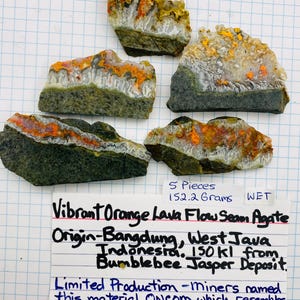 5 Pieces
152.2 Grams WET
Vibrant Orange Lava Flow Seam Agate
Origin-Bangdung, West Java
Indonesia, 150 kl from
Bumblebee Jasper Deposit.
Limited Production - miners named
this material which